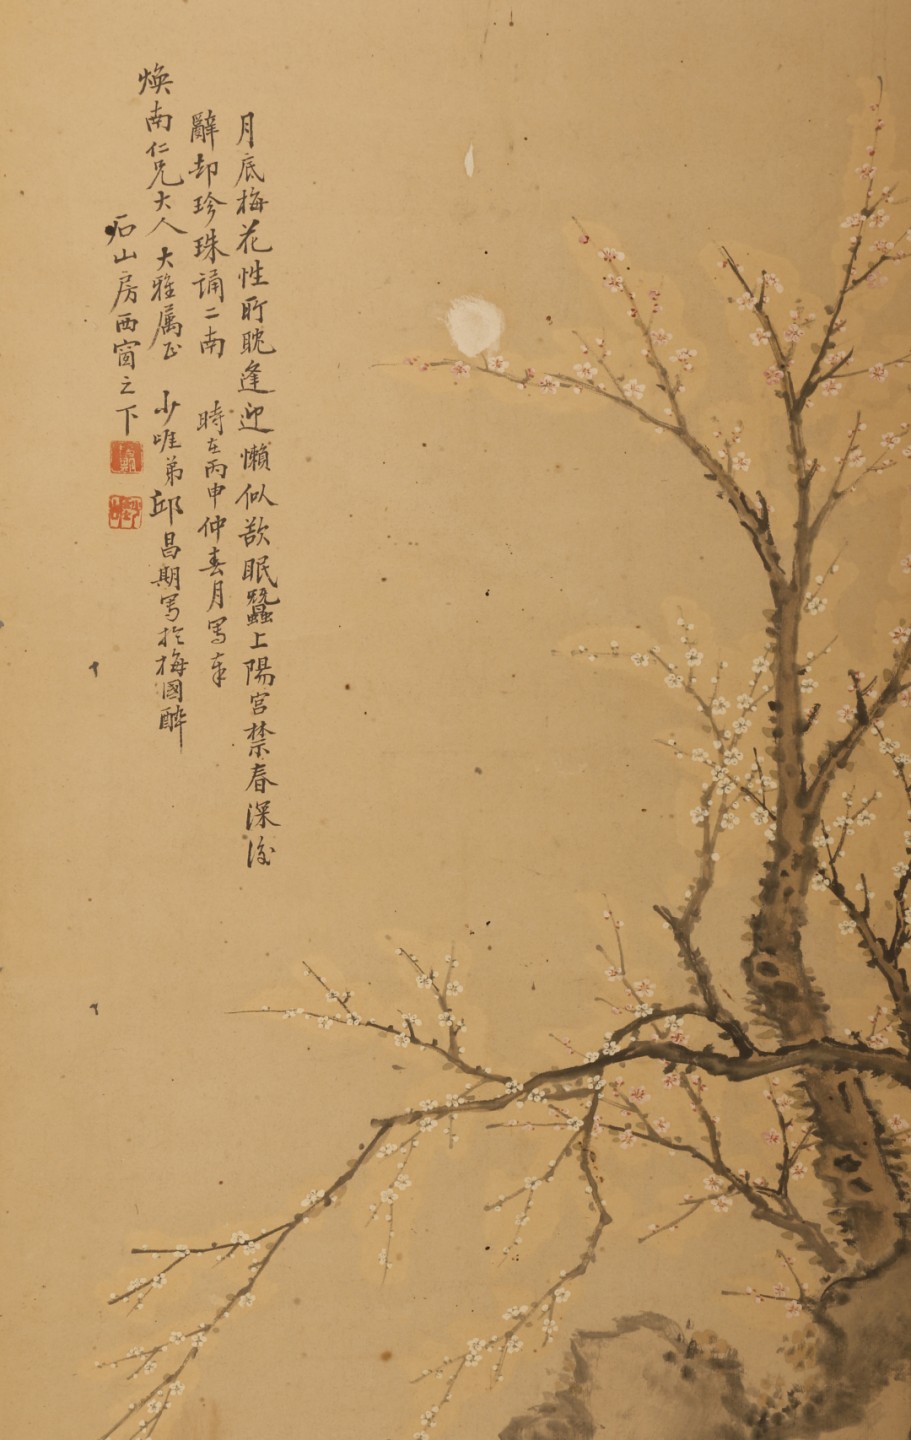 月底梅花性所耽逢迎懶似欲眠蠶上陽宮禁春深後
辭却珍珠誦二南 時在丙申仲春月寫奉
煥南仁兄大人大雅屬正 少唯弟邱昌期寫於梅國醉
石山房西窗之下